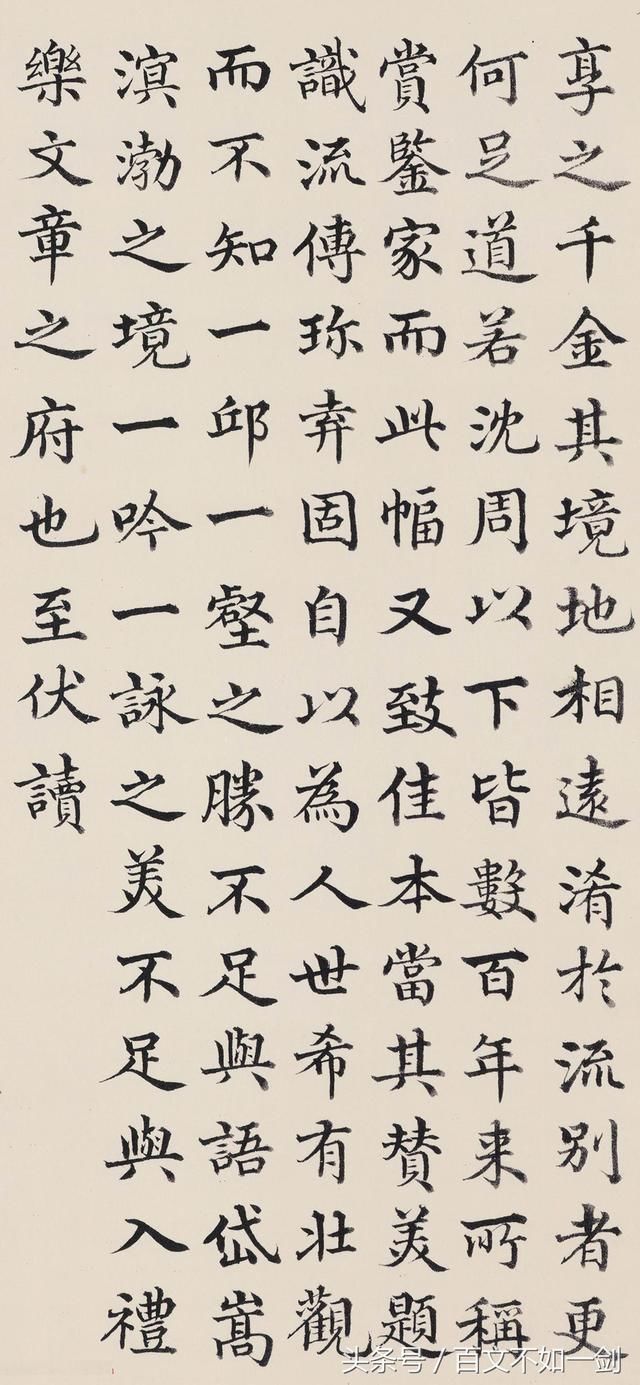 享之千金其境地相遠淆於流別者更
何足道若沈周以下皆數百年来所稱
賞鑒家而此幅又致佳本當其賛美題
識流傳珎弆固自以為人世希有壯觀
而不知一邱一壑之勝不足與語岱嵩
溟渤之境一吟一詠之美不足與入禮
樂文章之府也至伏讀
头条号/百文不如一剑